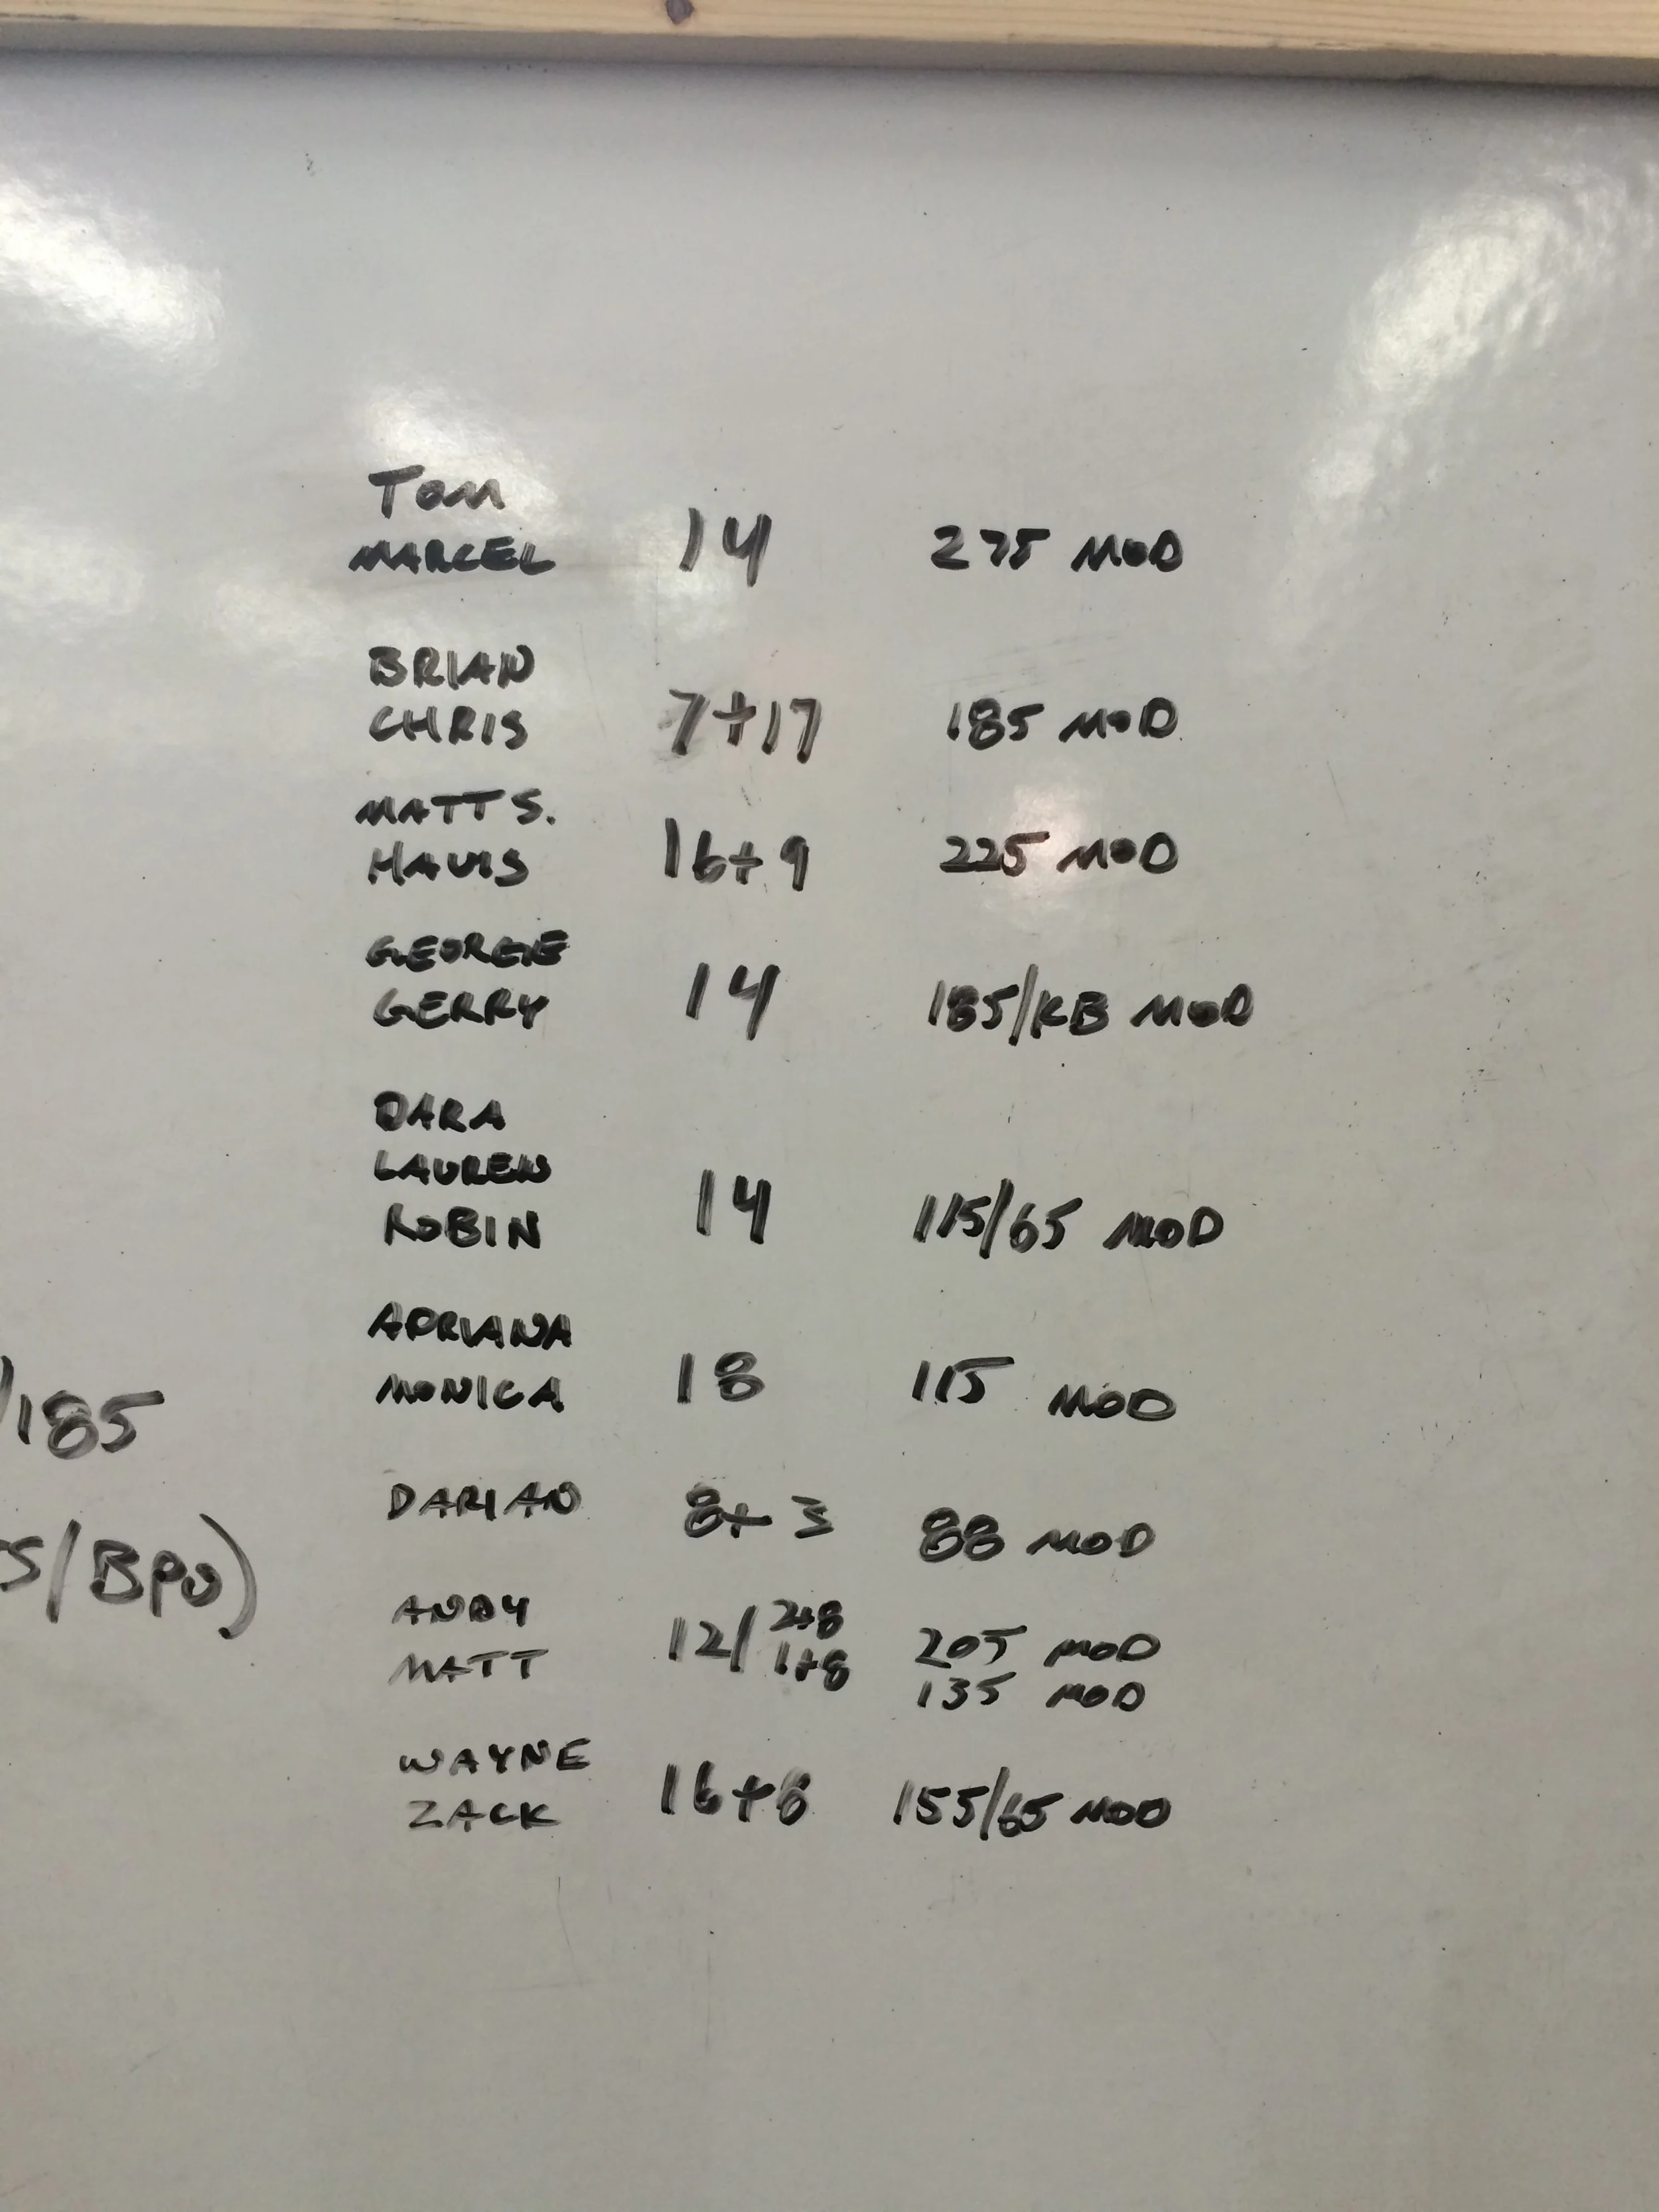 TOM
MARCEL 14 275 MOD
BRIAN
CHRIS 7+17 185 MOD
MATT S.
HAVIS 16+9 225 MOD
GEORGIE
GERRY 14 185/KB MOD
DARA
LAUREN
ROBIN 14 115/65 MOD
ADRIANA
MONICA 18 115 MOD
/185
DARIAN 8+3 88 MOD
S/BPO)
ANDY 12/ 2+8 205 MOD
MATT 1+8 135 MOD
WAYNE
ZACK 16+8 155/65 MOD